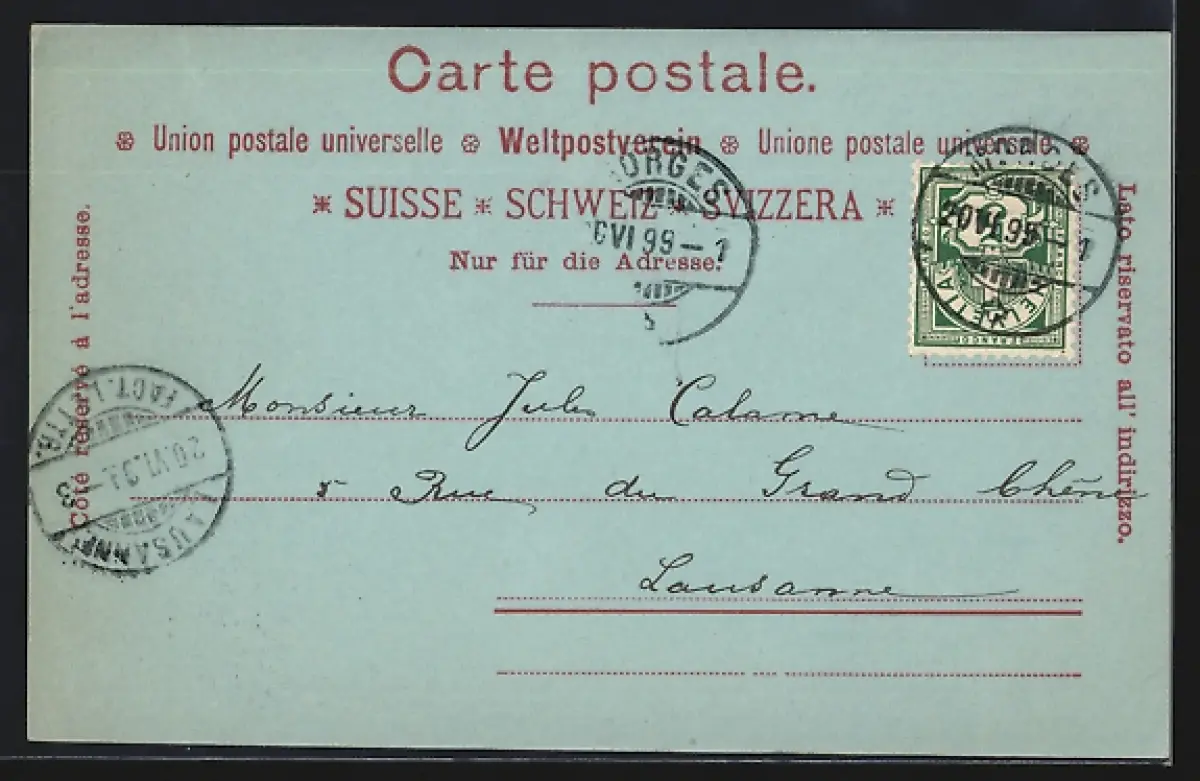 Carte postale.
Union postale universelle Weltpostverein Unione postale universale
SUISSE SCHWEIZ SVIZZERA
Nur für die Adresse.
Côté réservé à l'adresse.
Lato riservato all' indirizzo.
ORGES
VI 99-1
20 VI 99 1
HELVETIA
FRANCO
FACT. LETTR.
20.VI.99-3
LAUSANNE
Monsieur Jules Calame
5 Rue du Grand Chêne
Lausanne